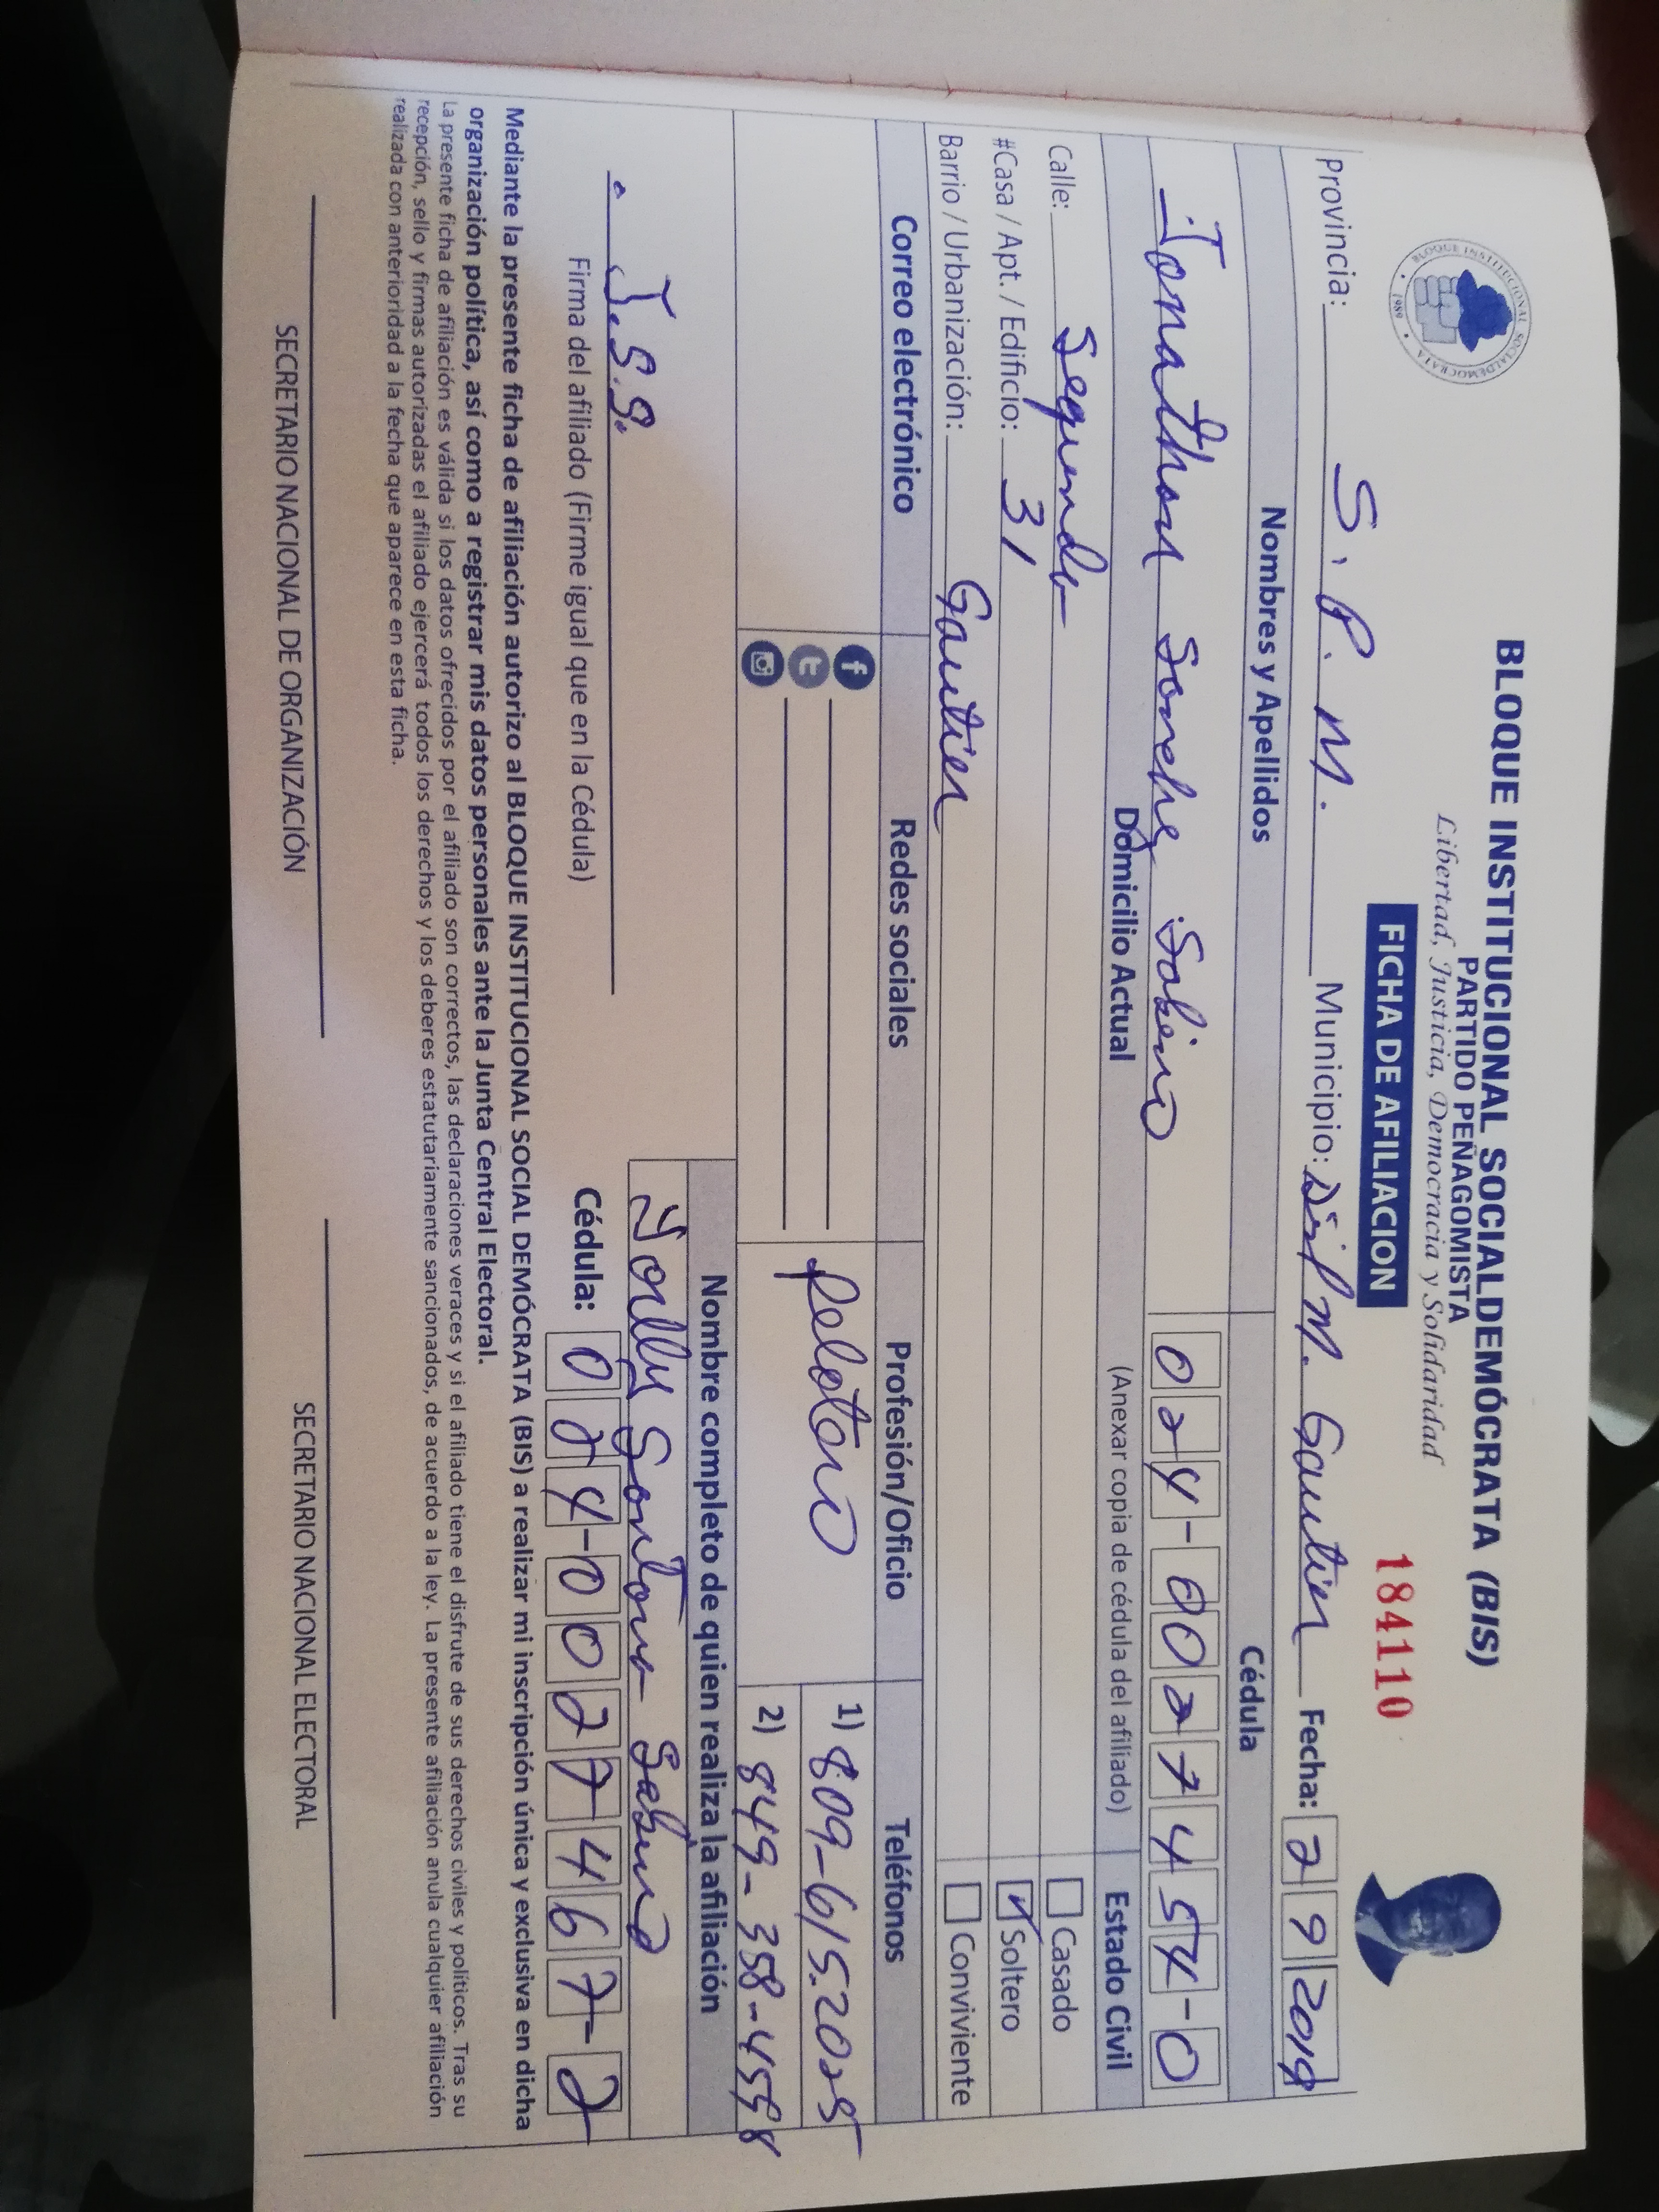 BLOQUE INSTITUCIONAL SOCIALDEMÓCRATA (BIS)
PARTIDO PEÑAGOMISTA
Libertad, Justicia, Democracia y Solidaridad
BLOQUE INSTITUCIONAL SOCIALDEMOCRATA
1989
FICHA DE AFILIACION
184110
Provincia: S. P. M. Municipio: Gautier Fecha: 2 9 2019
Nombres y Apellidos Cédula
Jonathan Sanche Sabino 024-0027454-0
Domicilio Actual (Anexar copia de cédula del afiliado) Estado Civil
Calle: Segunda Casado
#Casa / Apt. / Edificio: 31 Soltero
Barrio / Urbanización: Gautier Conviviente
Correo electrónico Redes sociales Profesión/Oficio Teléfonos
Pelotero 1) 809-615-2025
2) 849-358-4558
Nombre completo de quien realiza la afiliación
Santana Sabino
J.S.S.
Firma del afiliado (Firme igual que en la Cédula) Cédula: 024-0027467-2
Mediante la presente ficha de afiliación autorizo al BLOQUE INSTITUCIONAL SOCIAL DEMÓCRATA (BIS) a realizar mi inscripción única y exclusiva en dicha
organización política, así como a registrar mis datos personales ante la Junta Central Electoral.
La presente ficha de afiliación es válida si los datos ofrecidos por el afiliado son correctos, las declaraciones veraces y si el afiliado tiene el disfrute de sus derechos civiles y políticos. Tras su
recepción, sello y firmas autorizadas el afiliado ejercerá todos los derechos y los deberes estatutariamente sancionados, de acuerdo a la ley. La presente afiliación anula cualquier afiliación
realizada con anterioridad a la fecha que aparece en esta ficha.
SECRETARIO NACIONAL DE ORGANIZACIÓN SECRETARIO NACIONAL ELECTORAL